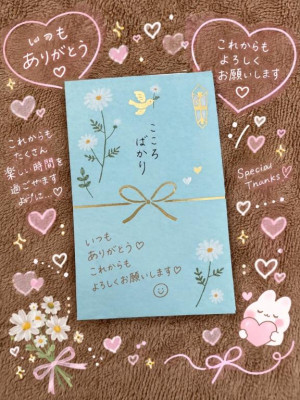 いつも
ありがとう♡
これからも
よろしく
お願いします
♡
これからも
たくさん
楽しい時間を
過ごせます
ように…♡
こころ
ばかり
Special
Thanks♡
いつも
ありがとう♡
これからも
よろしくお願いします♡